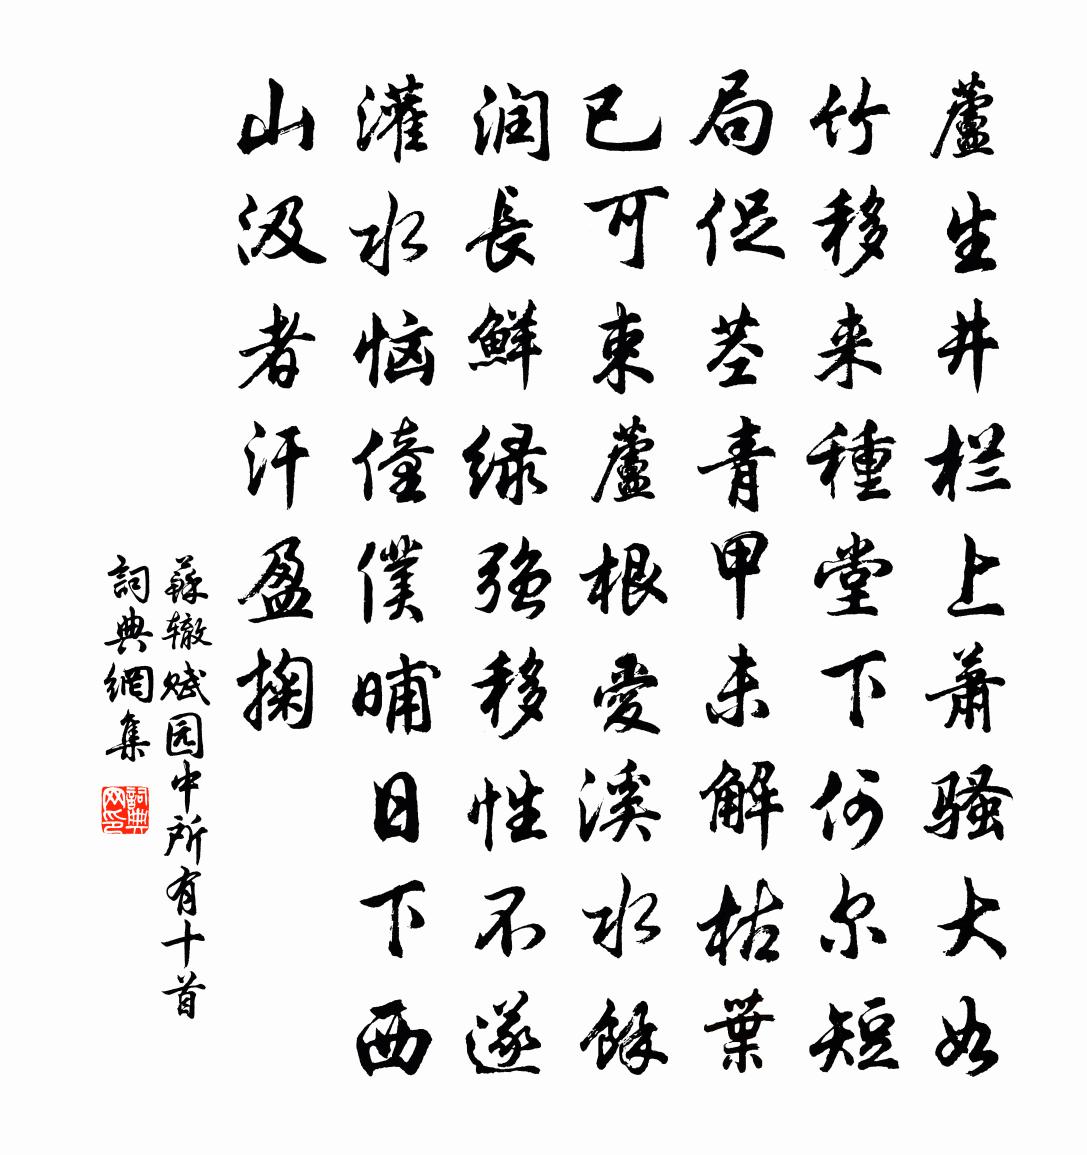 蘆生井栏上蕭骚大如
竹移来種堂下何尔短
局促茎青甲未解枯葉
已可束蘆根愛溪水餘
润長鮮绿强移性不遂
灌水恼僮僕晡日下西
山汲者汗盈掬
蘇辙赋园中所有十首
詞典網集
詞典网印